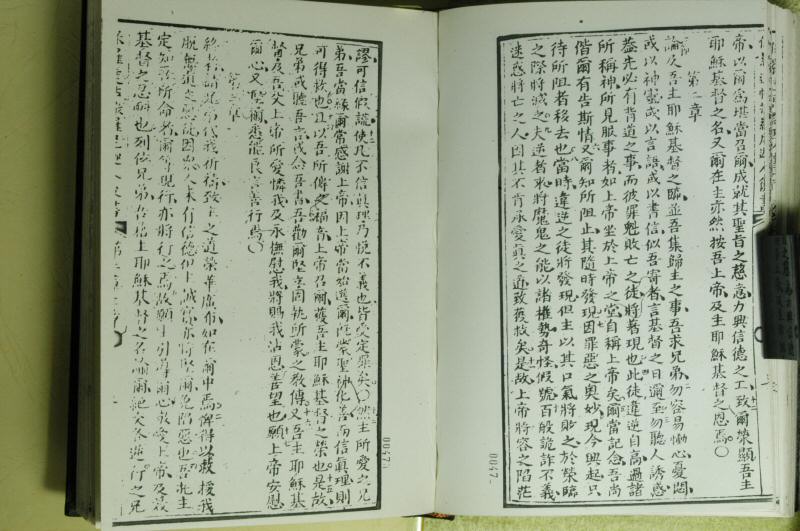 帝以爾爲堪當召爾成就其聖旨之慈意力興信德之工致爾榮顯吾主
耶穌基督之名又爾在主亦然按吾上帝及主耶穌基督之恩焉
第二章
論及吾主耶穌基督之臨並吾集歸主之事吾求兄弟勿容易慟心憂悶
或以神靈或以言語或以書信似吾寄者言基督之日邇至勿聽人誘惑
蓋先必有背道之事而彼罪魁敗亡之徒將著現也此徒違逆自高過諸
所稱神所見服事者如上帝坐於上帝之堂自稱上帝矣爾當記念吾尚
偕爾有告斯情又爾知所阻止其隨時發現因罪惡之奧妙現今興起只
待所阻者移去也當時違逆之徒將發現但主以其口氣將敗之於榮臨
之際將滅之夫逆者將魔鬼之能以諸權勢奇怪假號百般詭詐不義
迷惑將亡之人因其不肯承愛真之道致獲救矣是故上帝將容之陷茫
謬可信假謊使凡不信真理乃悅不義也皆受定罪矣主所愛之兄
弟吾當緣爾常感謝上帝因上帝當始選爾成聖化善而信氣理則
可得救也且以吾所傳之福音上帝召爾獲吾主耶穌基督之榮也是故
兄弟或聽吾言或念吾書吾勸爾堅立固執所蒙之教傳又吾主耶穌基
督及吾父上帝所愛憐我及永撫慰我將賜我沾恩善望也願上帝安慰
爾心又堅爾悉能良言善行焉
第三章
我祈禱致主之道榮華廣布如在爾中焉俾得以救援我
脫無道之惡徒因眾人未有信德但主誠實亦將堅爾免陷惡也吾托主
定知吾所命者爾等現行亦將行之焉故願主引導爾心敬愛上帝及
基督之恩耐也列位兄弟吾信主耶穌基督之名命爾絕交各逆行之兄
0047
0047